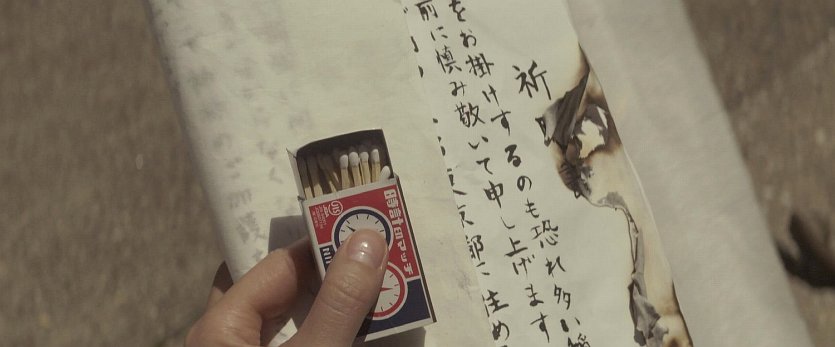 祈
をお掛けするのも恐れ多い
前に慎み敬いて申し上げます
京都に住め
時計印マッチ
JIS